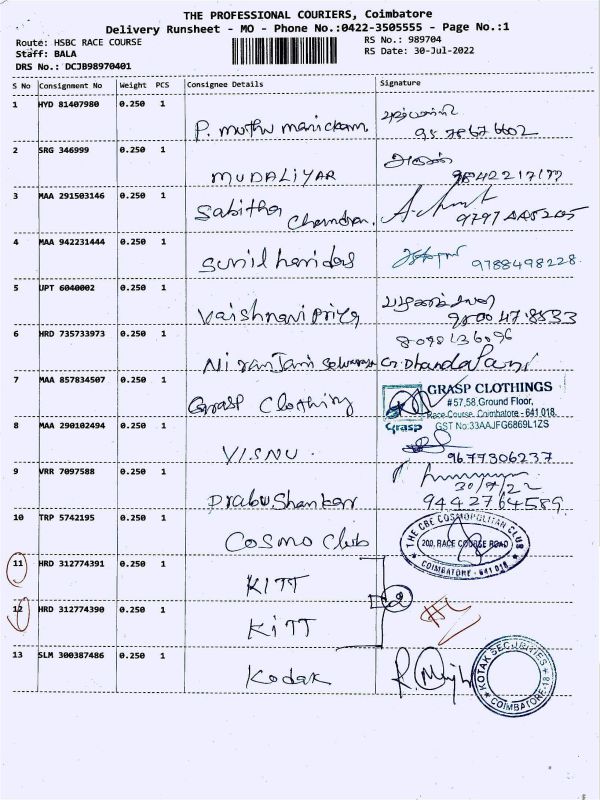 THE PROFESSIONAL COURIERS, Coimbatore
Delivery Runsheet - MO - Phone No.:0422-3505555 - Page No.:1
Route: HSBC RACE COURSE RS No.: 989704
Staff: BALA RS Date: 30-Jul-2022
DRS No.: DCJB98970401
S No Consignment No Weight PCS Consignee Details Signature
1 HYD 81407980 0.250 1
P. muthu manickam
2 SRG 346999 0.250 1
MUDALIYAR
3 MAA 291503146 0.250 1
Sabitha Chandran.
4 MAA 942231444 0.250 1
Sunil haridas 9788498228
5 UPT 6040002 0.250 1
Vaishnavi Priya
6 HRD 735733973 0.250 1
Niranjani
7 MAA 857834507 0.250 1
Grasp Clothing
GRASP CLOTHINGS
#57,58,Ground Floor,
Race Course, Coimbatore - 641 018.
Grasp GST No:33AAJFG6869L1ZS
8 MAA 290102494 0.250 1
VISNU. 9677306237
9 VRR 7097588 0.250 1
30/7/22
Prabu Shankar 9442764589
10 TRP 5742195 0.250 1
Cosmo Club
THE CBE COSMOPOLITAN CLUB
200, RACE COURSE ROAD
COIMBATORE - 641 018
11 HRD 312774391 0.250 1
KITT
12 HRD 312774390 0.250 1
KiTT
13 SLM 300387486 0.250 1
Kodak
KOTAK SECURITIES
COIMBATORE-18